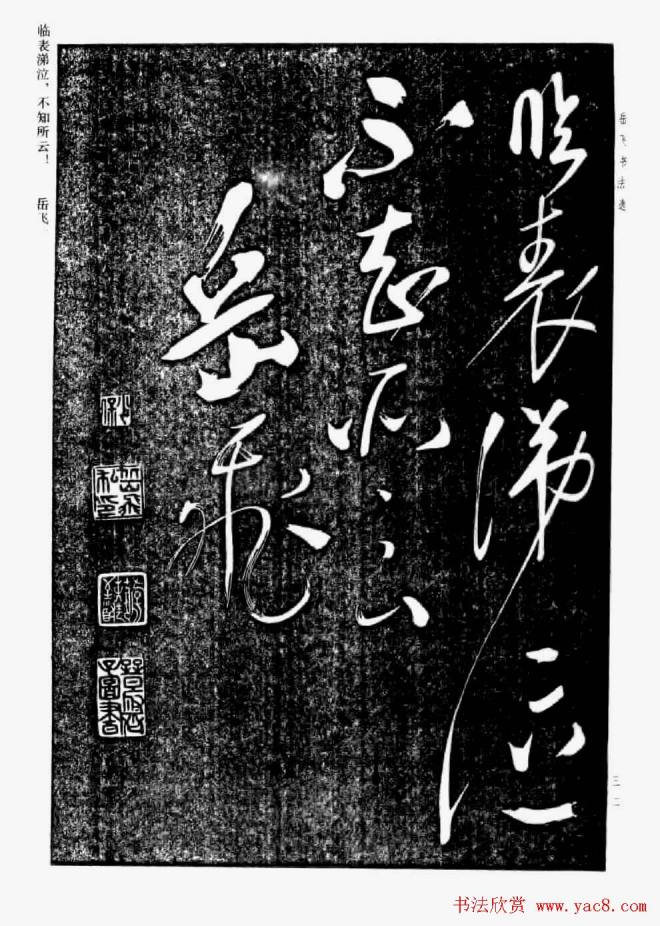 岳飞书法选
临表涕泣
不知所云
岳飛
岳飛私印
三二
临表涕泣，不知所云！ 岳飞
书法欣赏 www.yac8.com